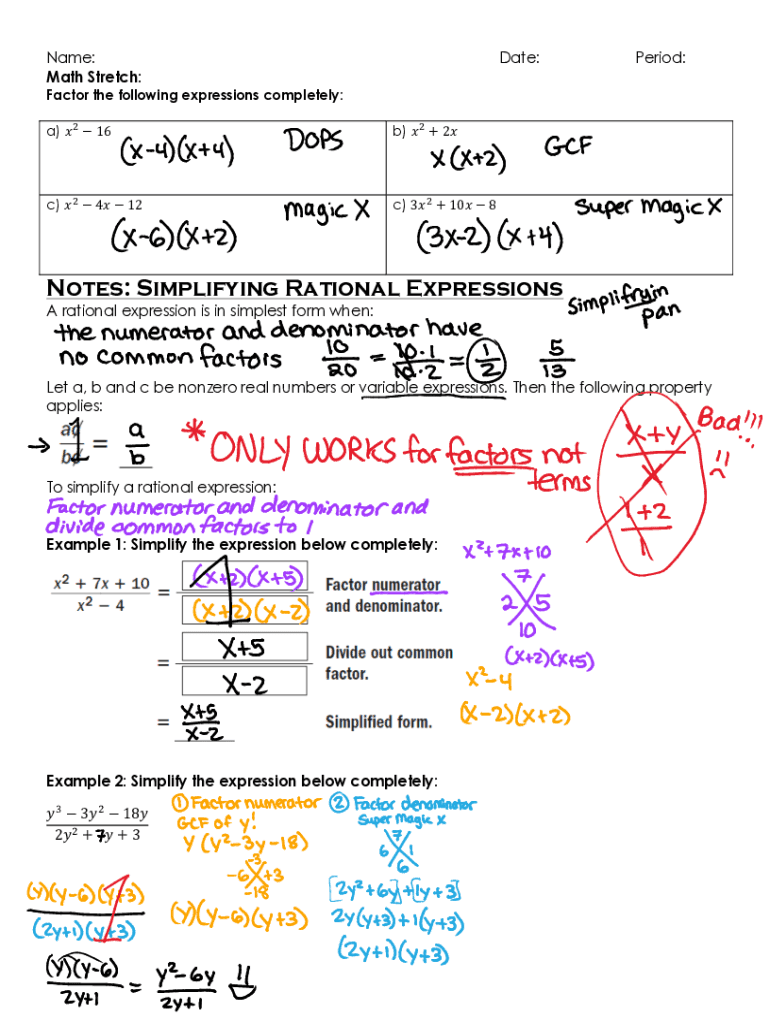 Name: Date: Period:
Math Stretch:
Factor the following expressions completely:
a) x² − 16 (x-4)(x+4) DOPS
b) x² + 2x x(x+2) GCF
c) x² − 4x − 12 magic X
(x-6)(x+2)
c) 3x² + 10x − 8 Super Magic X
(3x-2)(x+4)
NOTES: SIMPLIFYING RATIONAL EXPRESSIONS
Simplifryin pan
A rational expression is in simplest form when:
the numerator and denominator have
no common factors 10/20 = 10·1/10·2 = 1/2 5/13
Let a, b and c be nonzero real numbers or variable expressions. Then the following property
applies:
→ ac/bc = a/b * ONLY WORKS for factors not terms
x+y/x Bad!!!
1+2/1
To simplify a rational expression:
Factor numerator and denominator and
divide common factors to 1
Example 1: Simplify the expression below completely:
x² + 7x + 10 / x² − 4 = (x+2)(x+5) / (x+2)(x-2)
Factor numerator
and denominator.
= x+5 / x-2
Divide out common
factor.
= x+5 / x-2
Simplified form.
x²+7x+10
7
2 5
10
(x+2)(x+5)
x²-4
(x-2)(x+2)
Example 2: Simplify the expression below completely:
y³ − 3y² − 18y / 2y² + 7y + 3
① Factor numerator
GCF of y!
y (y²-3y-18)
-3
-6 +3
-18
(y)(y-6)(y+3)
② Factor denominator
Super Magic X
7
6 1
6
[2y²+6y]+[1y+3]
2y(y+3)+1(y+3)
(2y+1)(y+3)
(y)(y-6)(y+3) / (2y+1)(y+3)
(y)(y-6) / 2y+1 = y²-6y / 2y+1